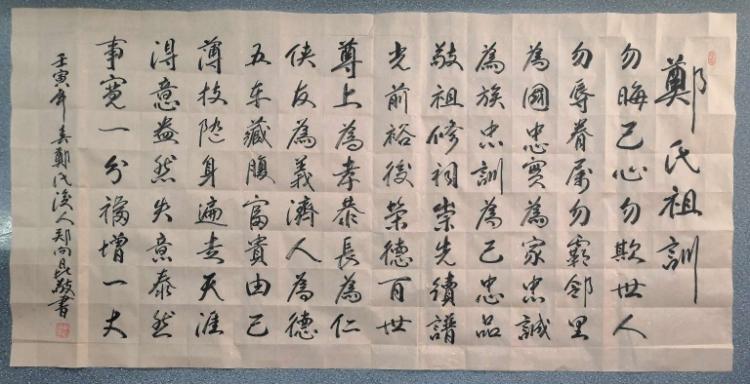 鄭氏祖訓
勿晦己心勿欺世人
勿辱眷属勿霸鄰里
為國忠實為家忠誠
為族忠訓為己忠品
敬祖修祠崇先續譜
光前裕後榮德百世
尊上為孝恭長為仁
俠友為義濟人為德
五车藏腹富貴由己
薄技随身遍走天涯
得意益然失意泰然
事寬一分福增一丈
壬寅年春鄭氏後人郑向昆敬書